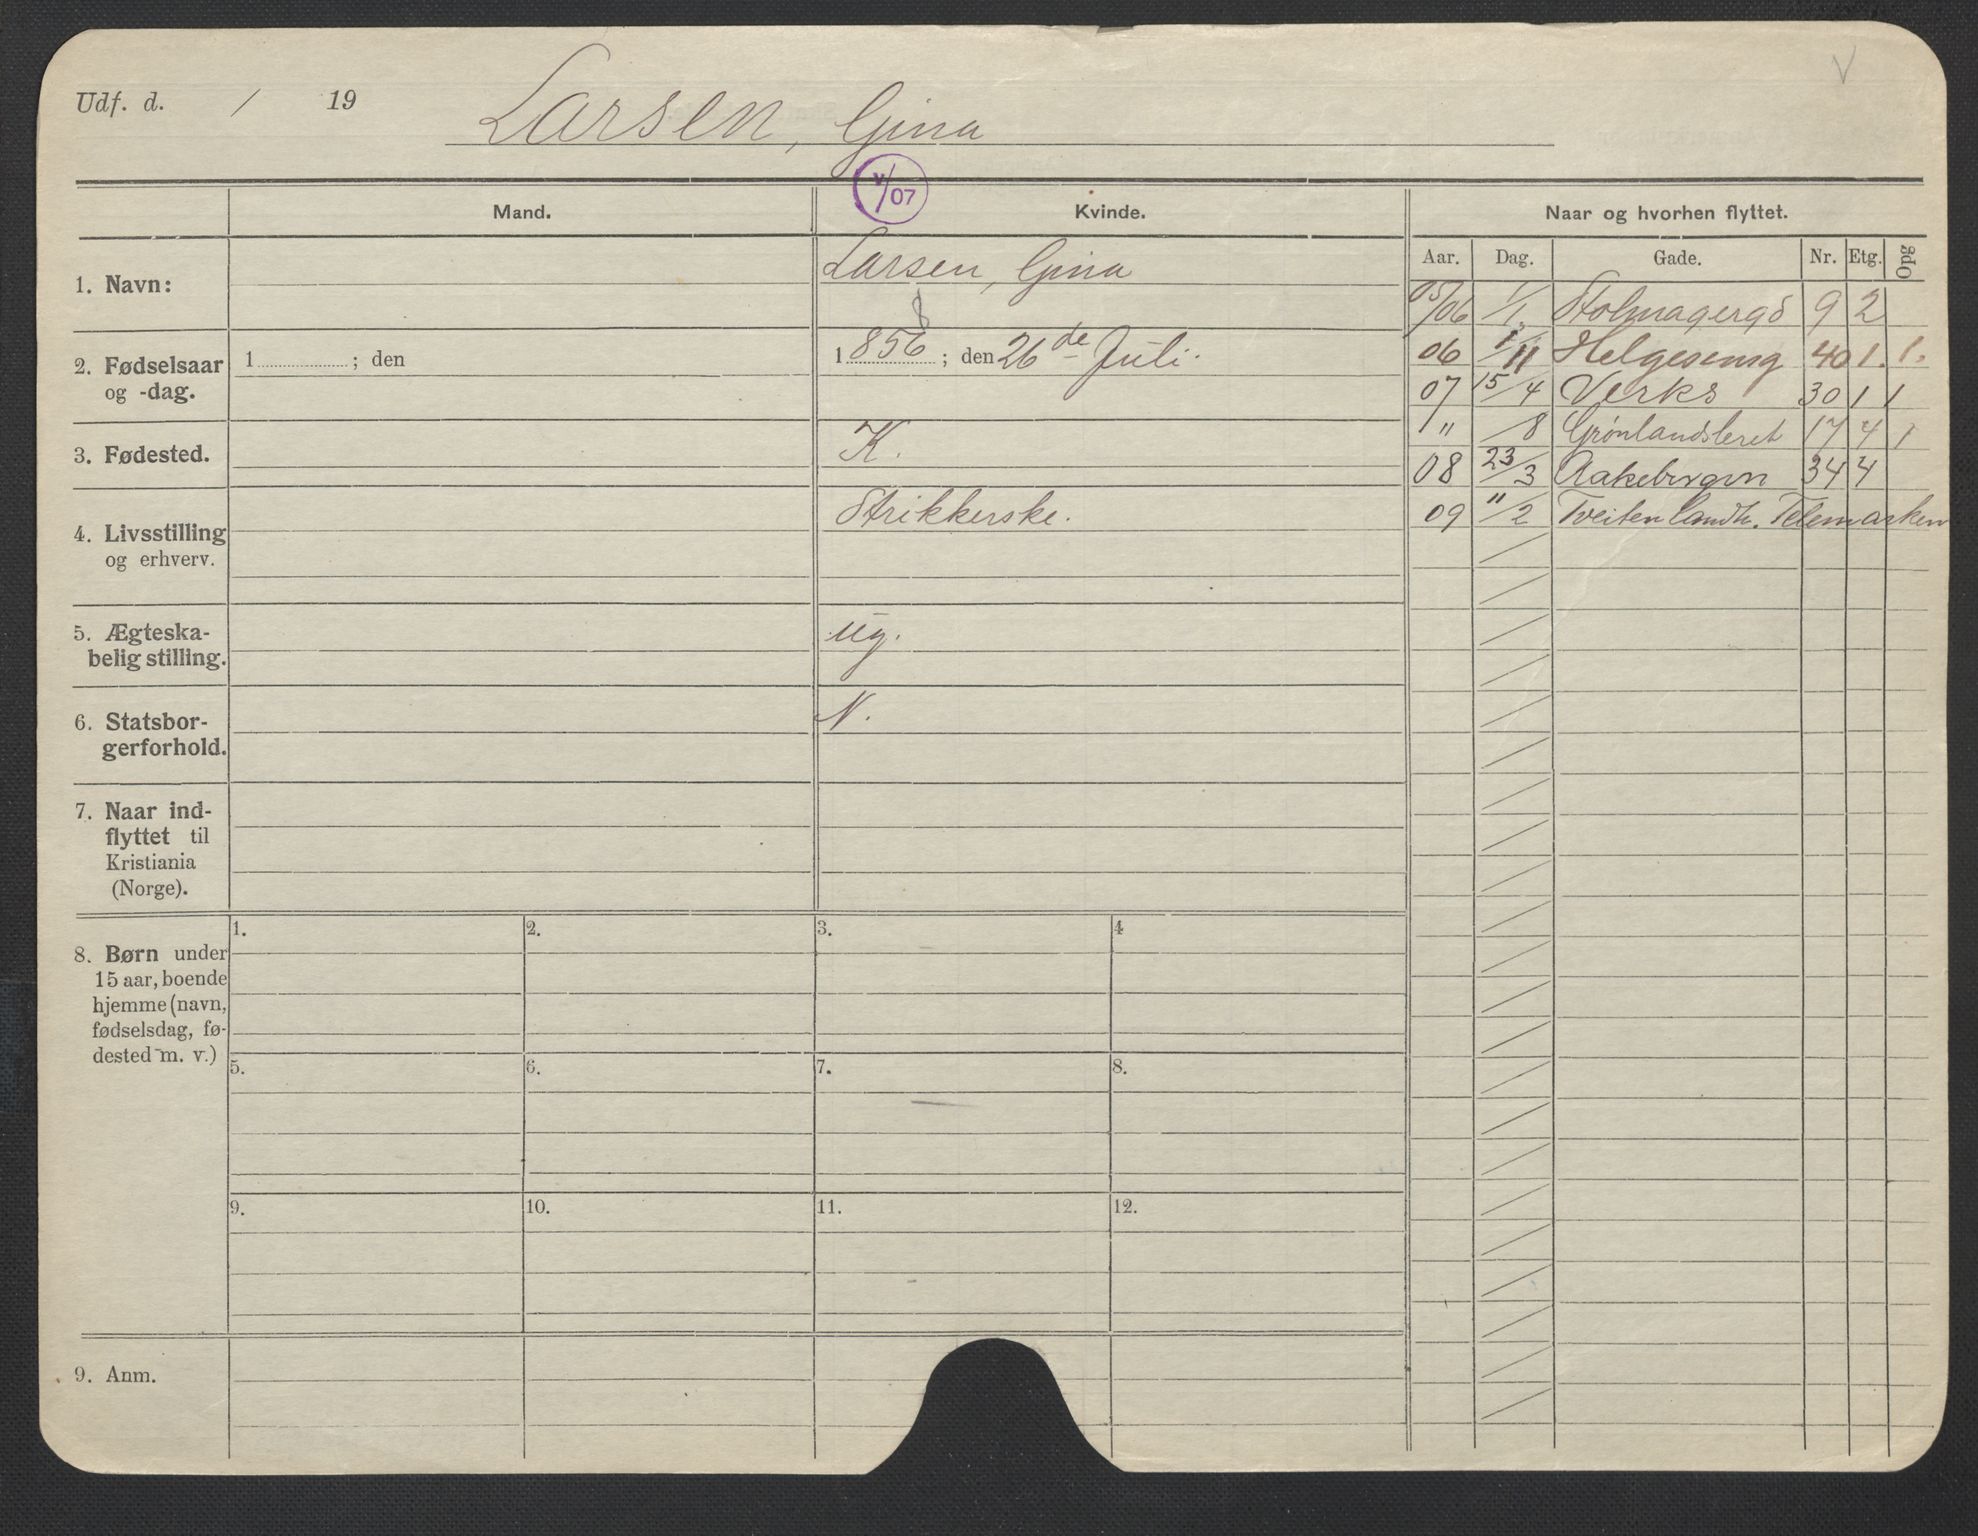 Udf. d. / 19 Larsen, Gina
V
V/07
Mand. Kvinde. Naar og hvorhen flyttet.
Aar. Dag. Gade. Nr. Etg. Opg
1. Navn: Larsen, Gina
8
2. Fødselsaar og -dag. 1 ; den 1 856 ; den 26de Juli.
3. Fødested. K.
4. Livsstilling og erhverv. Strikkerske.
5. Ægteska-
belig stilling. ug.
6. Statsbor-
gerforhold. N.
7. Naar ind-
flyttet til
Kristiania
(Norge).
05/06 1/1 Stolmagergd 9 2
06 1/11 Helgesensg 40 1. 1.
07 15/4 Verks 30 1 1
" /8 Grønlandsleret 17 4 1
08 23/3 Aakebergvn 34 4
09 "/2 Tveiten landh. Telemarken
8. Børn under
15 aar, boende
hjemme (navn,
fødselsdag, fø-
dested m. v.)
1. 2. 3. 4
5. 6. 7. 8.
9. 10. 11. 12.
9. Anm.